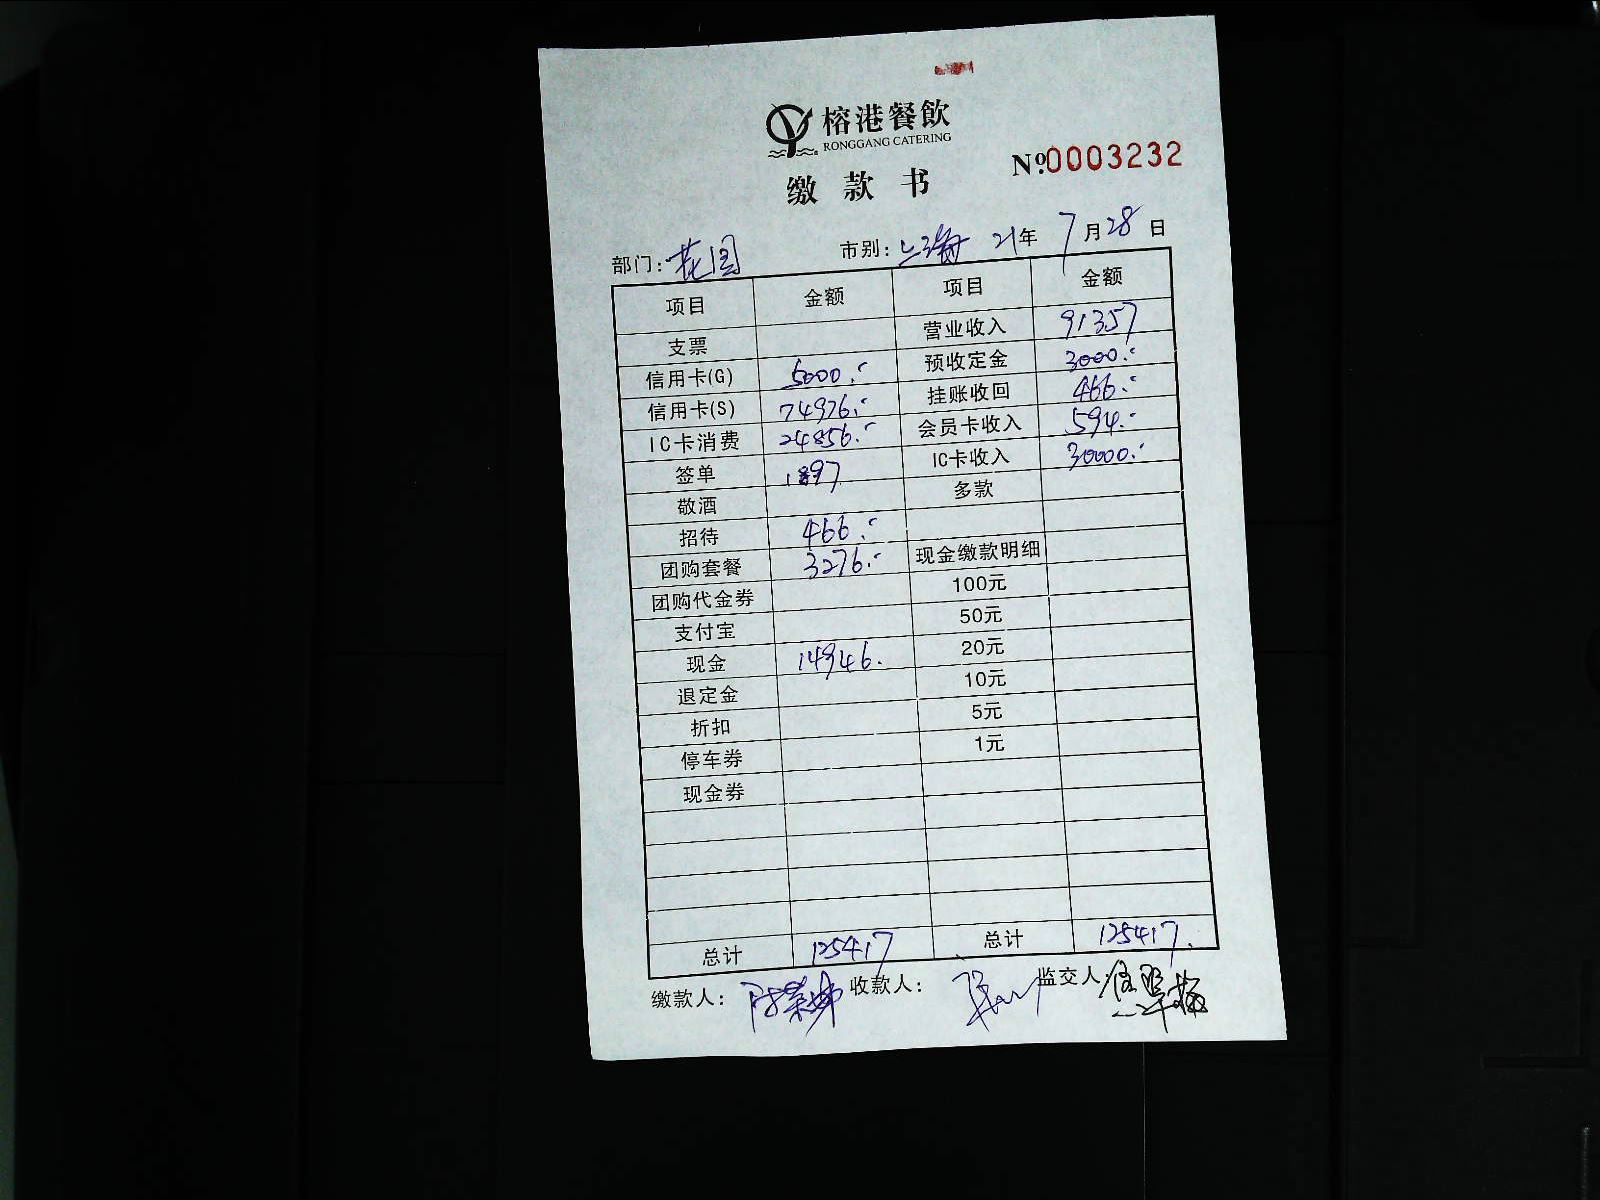 榕港餐飲
RONGGANG CATERING
No.0003232
缴款书
部门：花园 市别：上海 21年 7月28日
项目 金额 项目 金额
支票 营业收入 91357
信用卡(G) 5000.- 预收定金 3000.-
信用卡(S) 74976.- 挂账收回 466.-
IC卡消费 24856.- 会员卡收入 594.-
签单 1897 IC卡收入 30000.-
敬酒 多款
招待 466.-
团购套餐 3276.- 现金缴款明细
团购代金券 100元
支付宝 50元
现金 14946. 20元
退定金 10元
折扣 5元
停车券 1元
现金券
总计 125417 总计 125417.
缴款人： 收款人： 监交人：